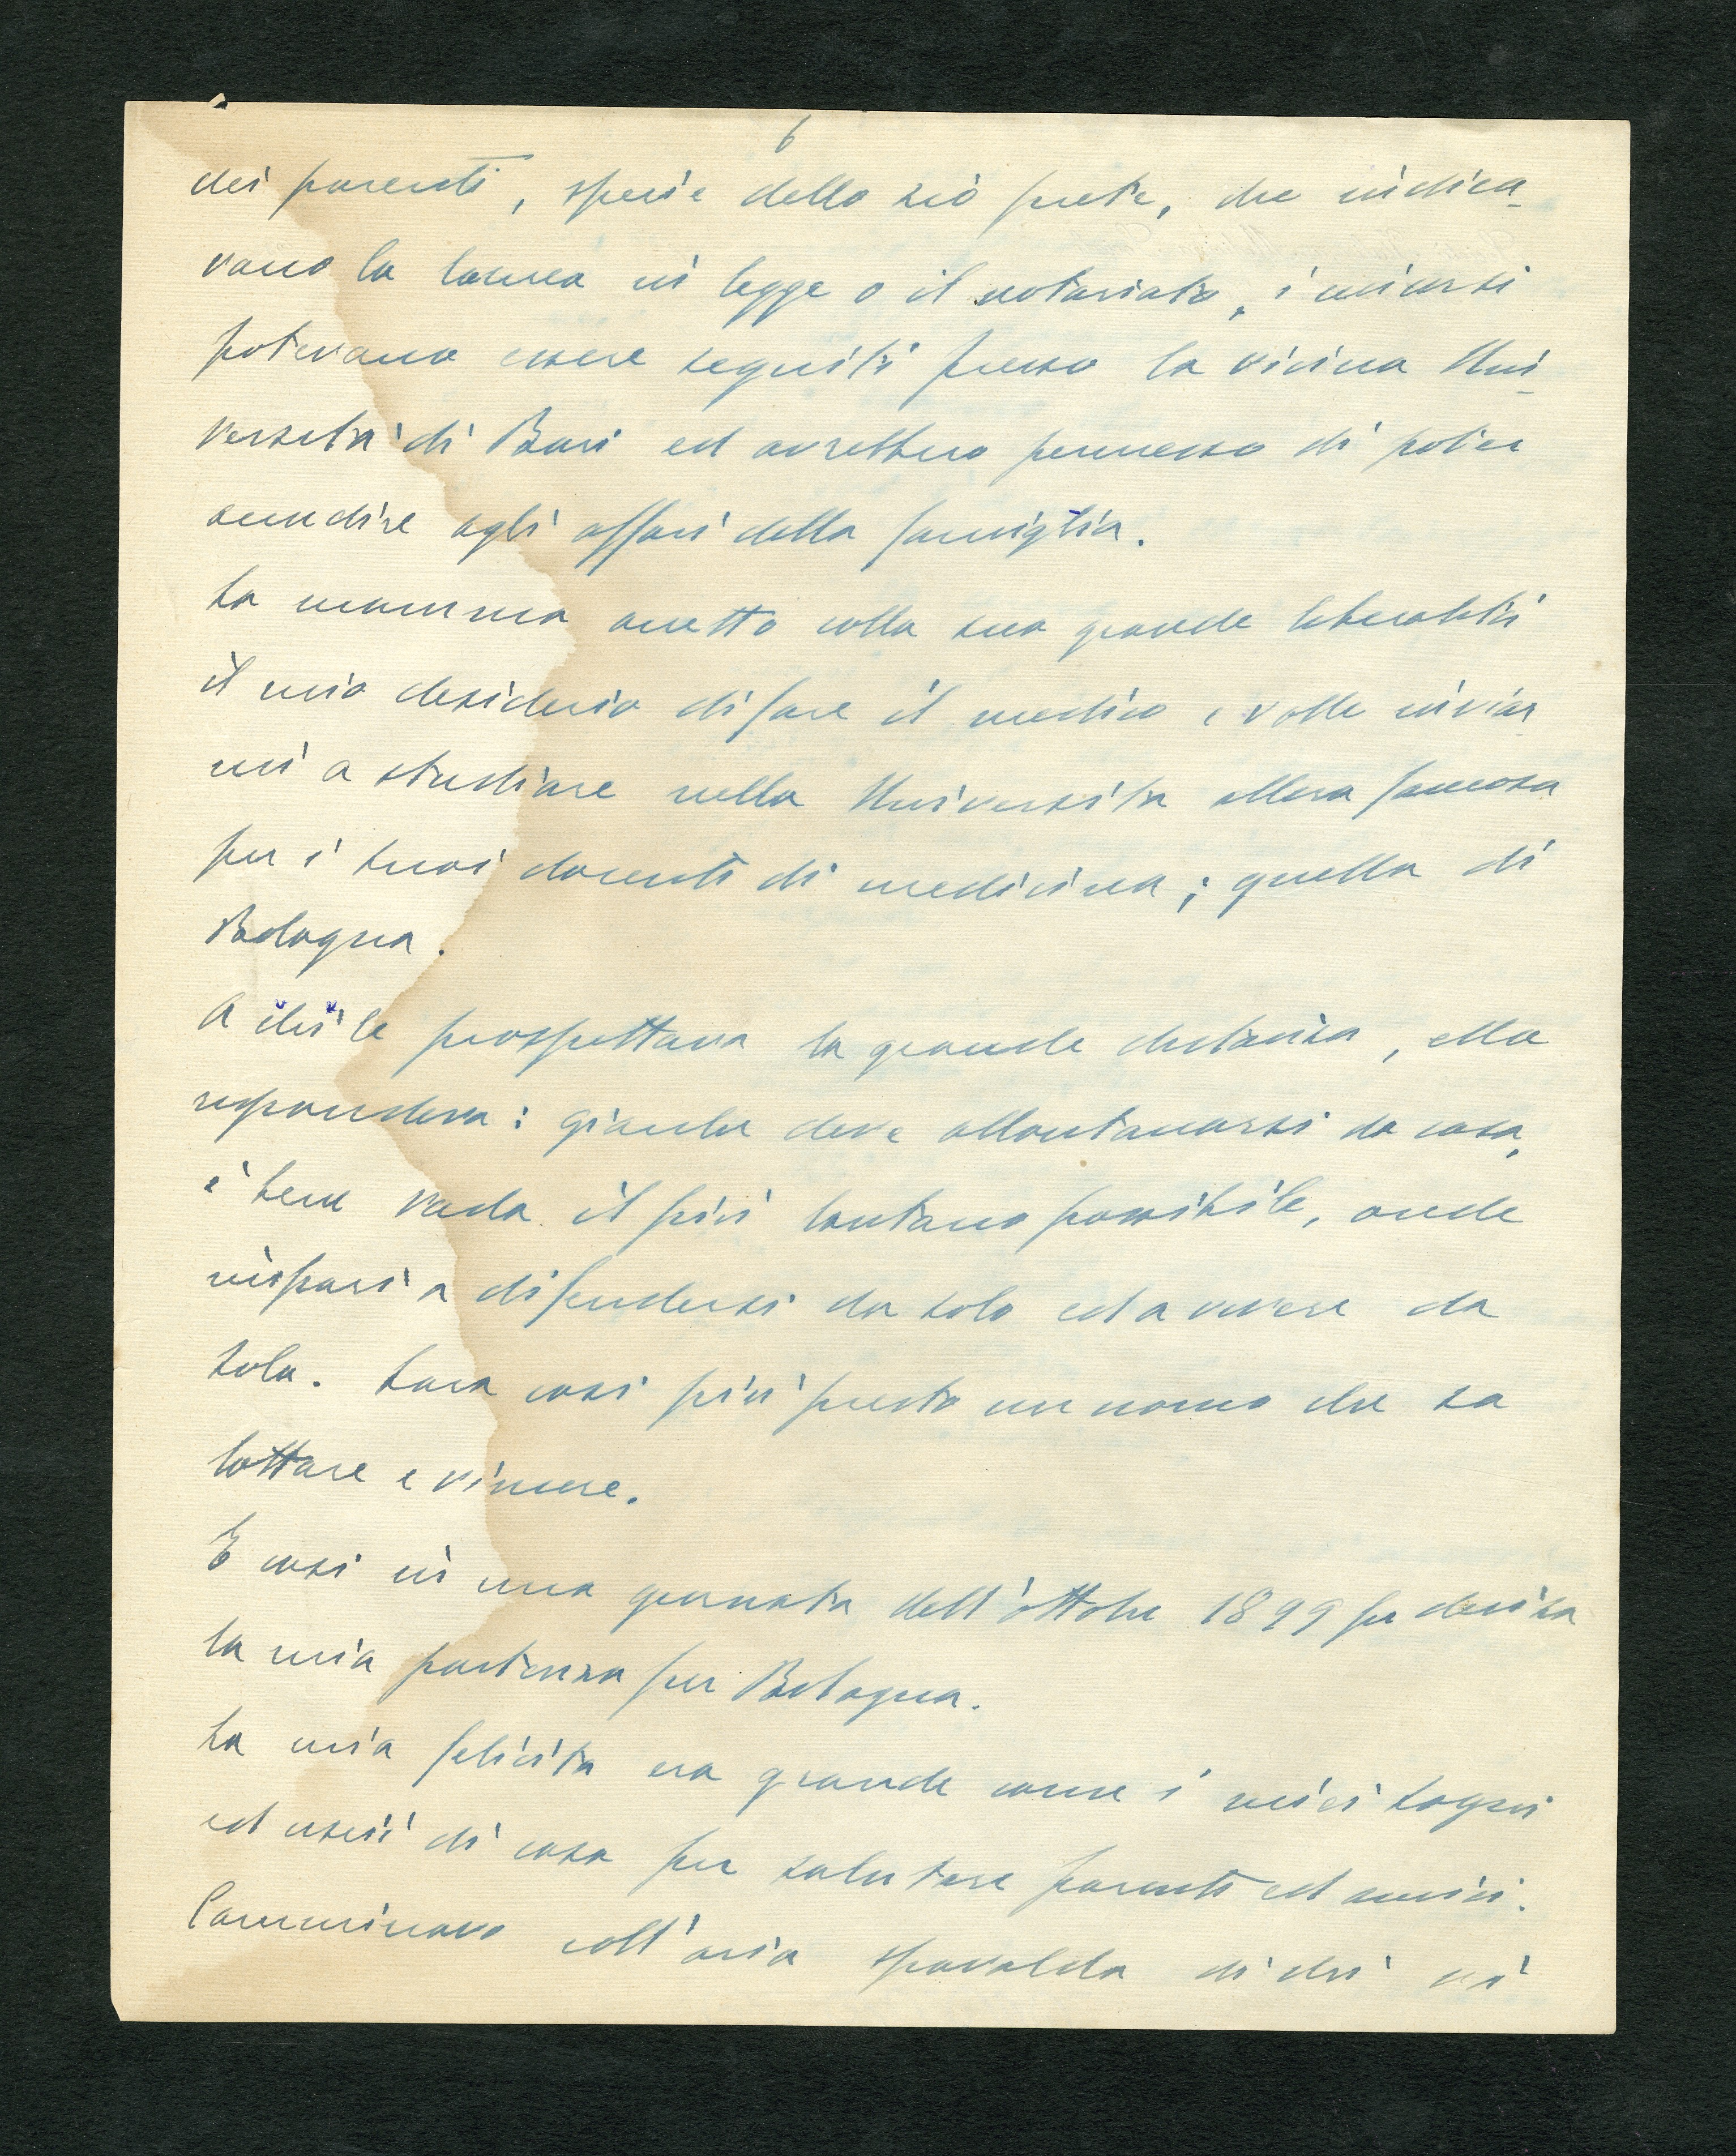 6
dei parenti, specie dello zio prete, che indica-
vano la laurea in legge o il notariato, i cui corsi
potevano essere seguiti presso la vicina Uni-
versità di Bari ed avrebbero permesso di poter
accudire agli affari della famiglia.
La mamma accettò colla sua grande liberalità
il mio desiderio di fare il medico e volle inviar
mi a studiare nella Università allora famosa
per i suoi docenti di medicina; quella di
Bologna.
A chi le prospettava la grande distanza, ella
rispondeva: giacche deve allontanarsi da casa,
è bene vada il più lontano possibile, onde
impari a difendersi da solo ed a vivere da
solo. Sara cosi più presto un uomo che sa
lottare e vincere.
E cosi in una giornata dell'ottobre 1899 fu decisa
la mia partenza per Bologna.
La mia felicita era grande come i miei sogni
ed uscii di casa per salutare parenti ed amici.
Camminavo coll'aria spavalda di chi si